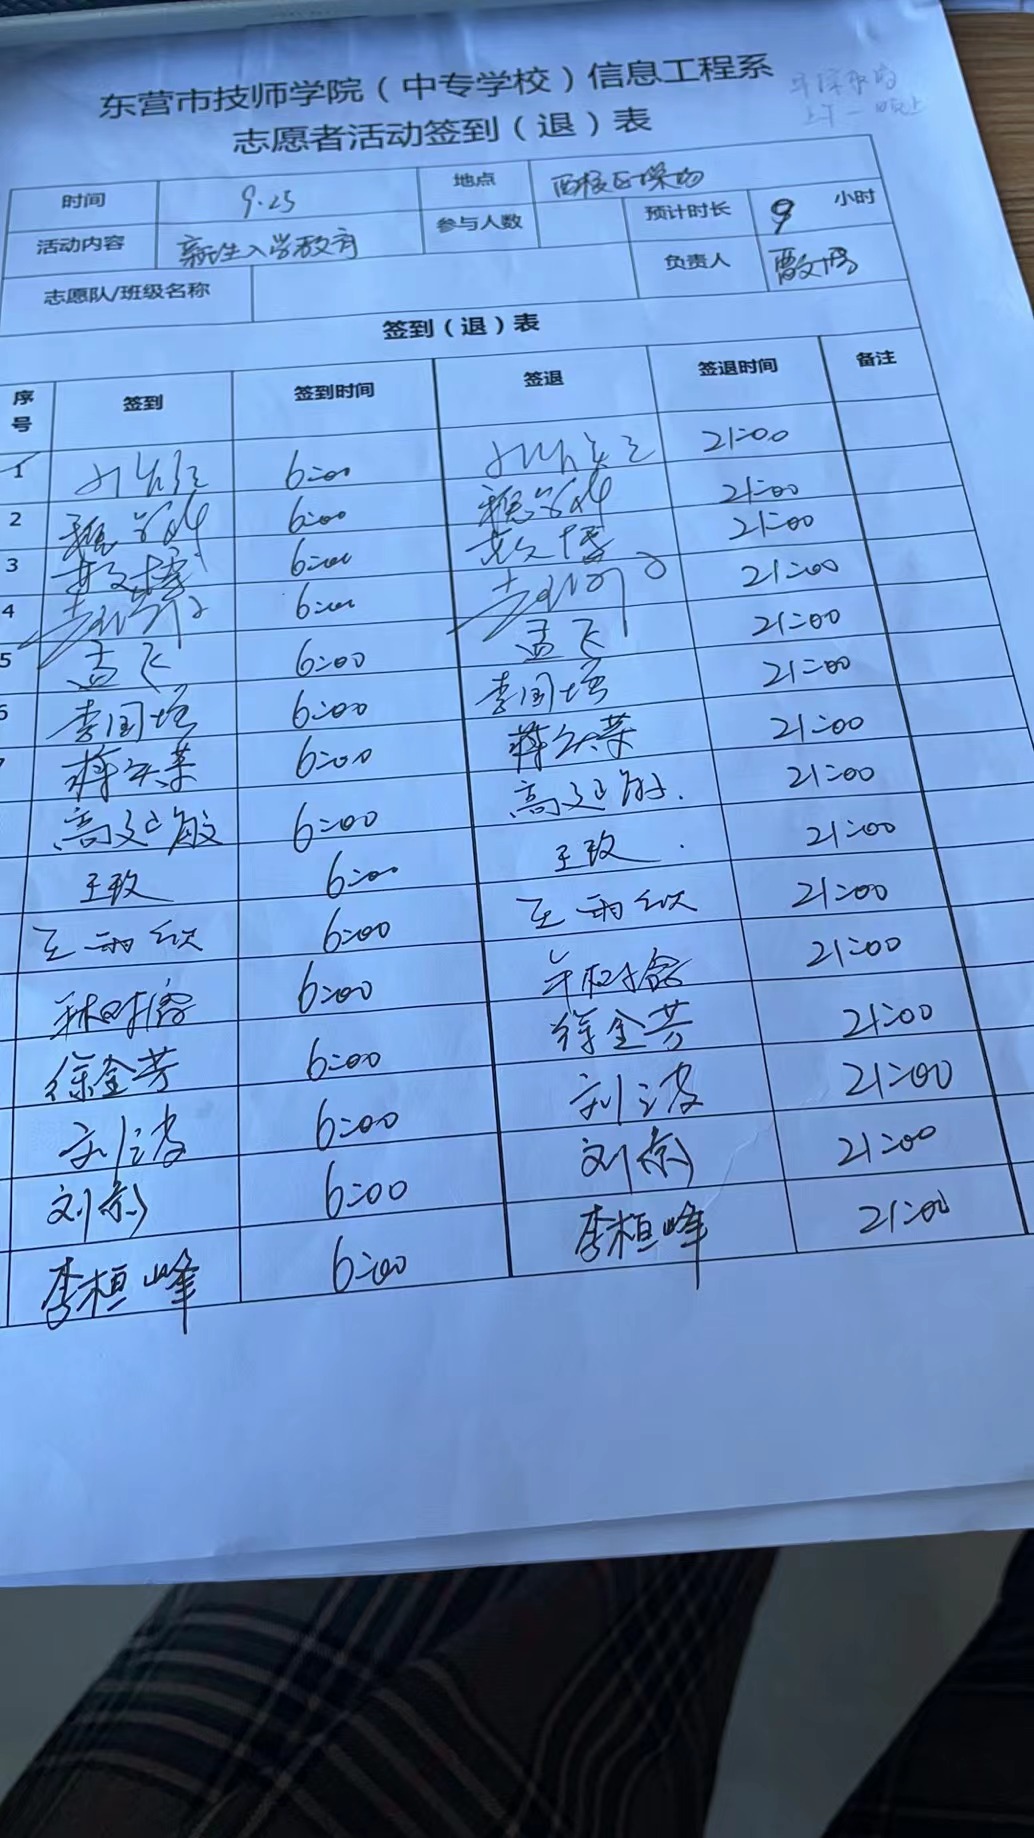 东营市技师学院（中专学校）信息工程系
志愿者活动签到（退）表
时间 9.25 地点 西校区操场
活动内容 新生入学教育 参与人数 预计时长 9 小时
志愿队/班级名称 负责人
签到（退）表
序号 签到 签到时间 签退 签退时间 备注
1 6:00 21:00
2 6:00 21:00
3 6:00 21:00
4 6:00 21:00
5 孟飞 6:00 孟飞 21:00
李国培 6:00 李国培 21:00
蒋安荣 6:00 蒋安荣 21:00
高延敏 6:00 高延敏 21:00
王玫 6:00 王玫 21:00
王雨欣 6:00 王雨欣 21:00
6:00 21:00
徐金芳 6:00 徐金芳 21:00
刘波 6:00 刘波 21:00
刘京 6:00 刘京 21:00
李桓峰 6:00 李桓峰 21:00